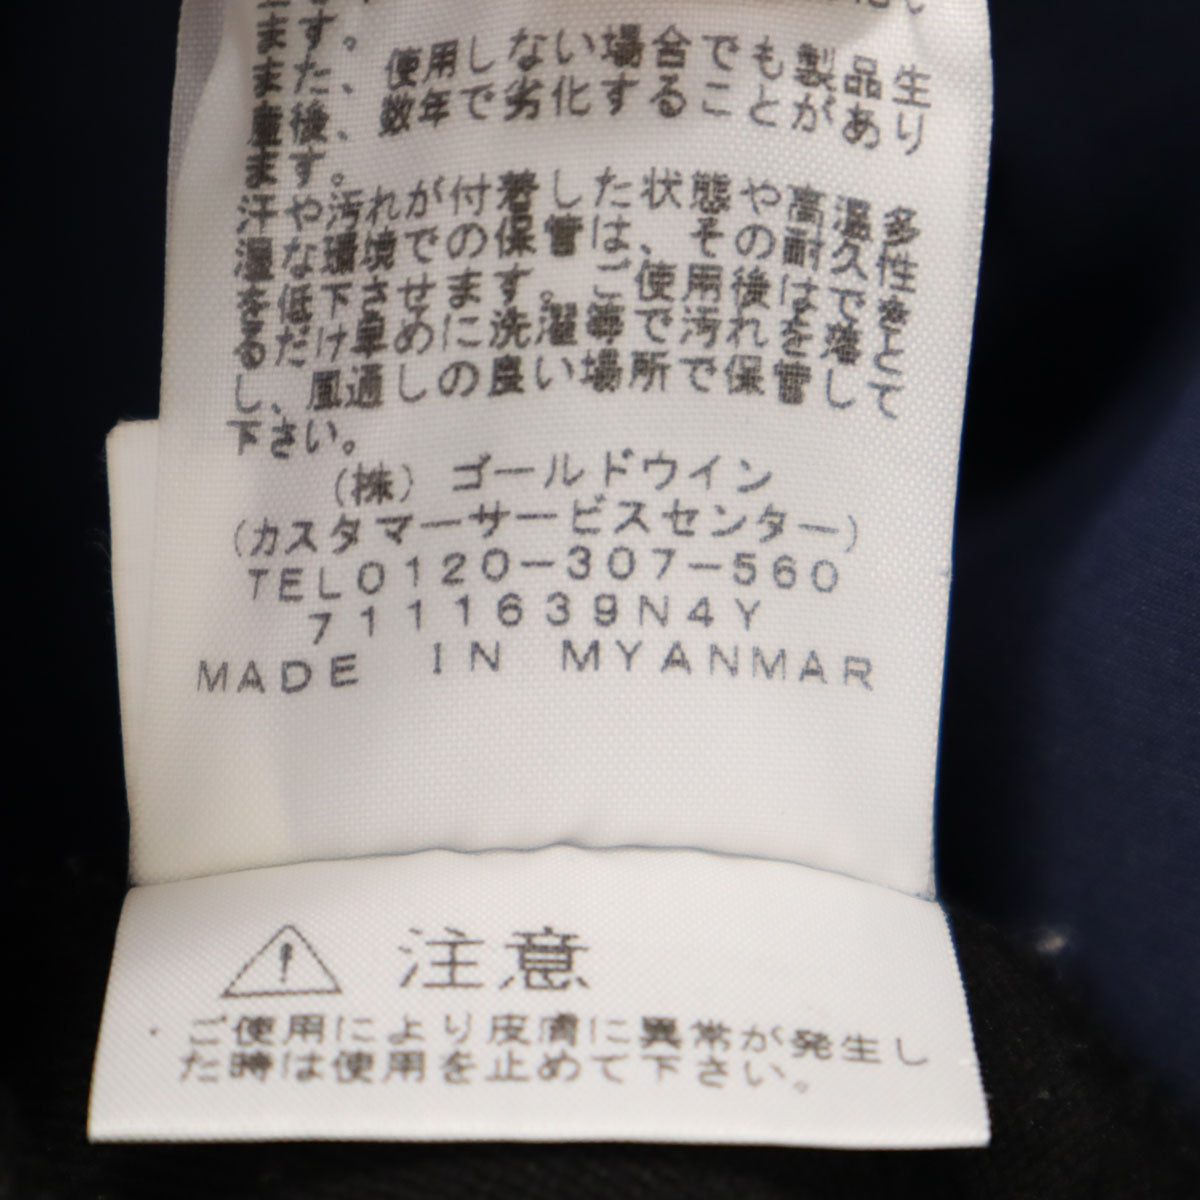 す。
使用しない場合でも製品生
数年で劣化することがあり
ます。
汗や汚れが付着した状態や高温多
湿な環境での保管は、その耐久性
を低下させます。ご使用後はでき
るだけ早めに洗濯等で汚れを落と
し、風通しの良い場所で保管して
下さい。
(株) ゴールドウイン
(カスタマーサービスセンター)
TEL0120-307-560
7111639N4Y
MADE IN MYANMAR
注意
・ご使用により皮膚に異常が発生し
た時は使用を止めて下さい。